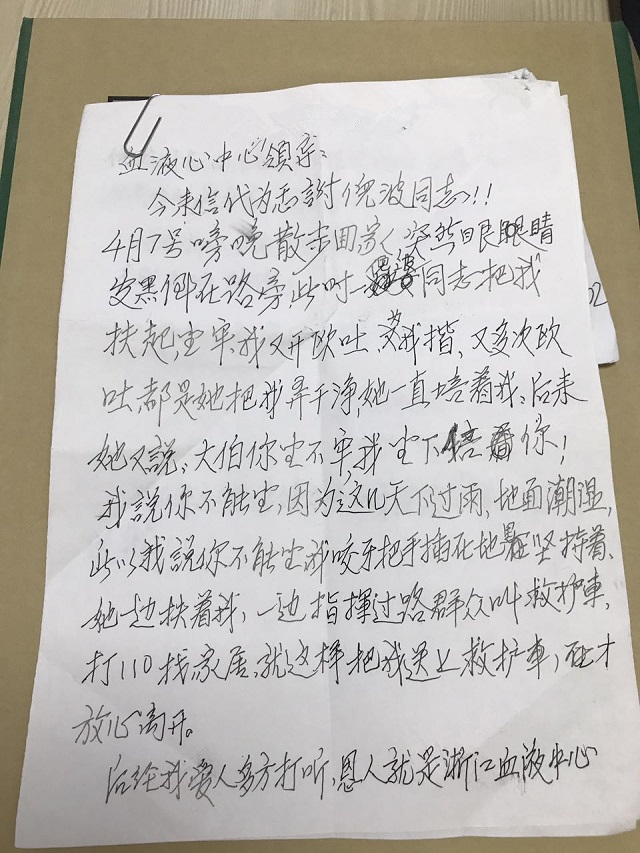 血液心中心领导:
今来信代为志谢倪波同志!!
4月7号傍晚散步回家突然眼眼睛
发黑倒在路旁,此时一同志把我
扶起,坐牢,我又开欧吐,又我揩,又多次欧
吐,都是她把我弄干净,她一直培着我、后来
她又説:大伯你坐不牢,我坐下培着你!
我説你不能坐,因为这几天下过雨,地面潮湿,
此以我説你不能坐我咬牙把手插在地坚持着、
她一边扶着我,一边指揮过路群众叫救护車,
打110找家属、就这样把我送上救护車,才
放心离开。
后经我爱人多方打听,恩人就是浙江血液中心
02